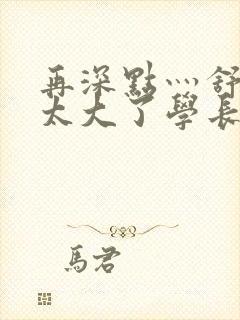 再深點灬舒
太大了學長
馬君